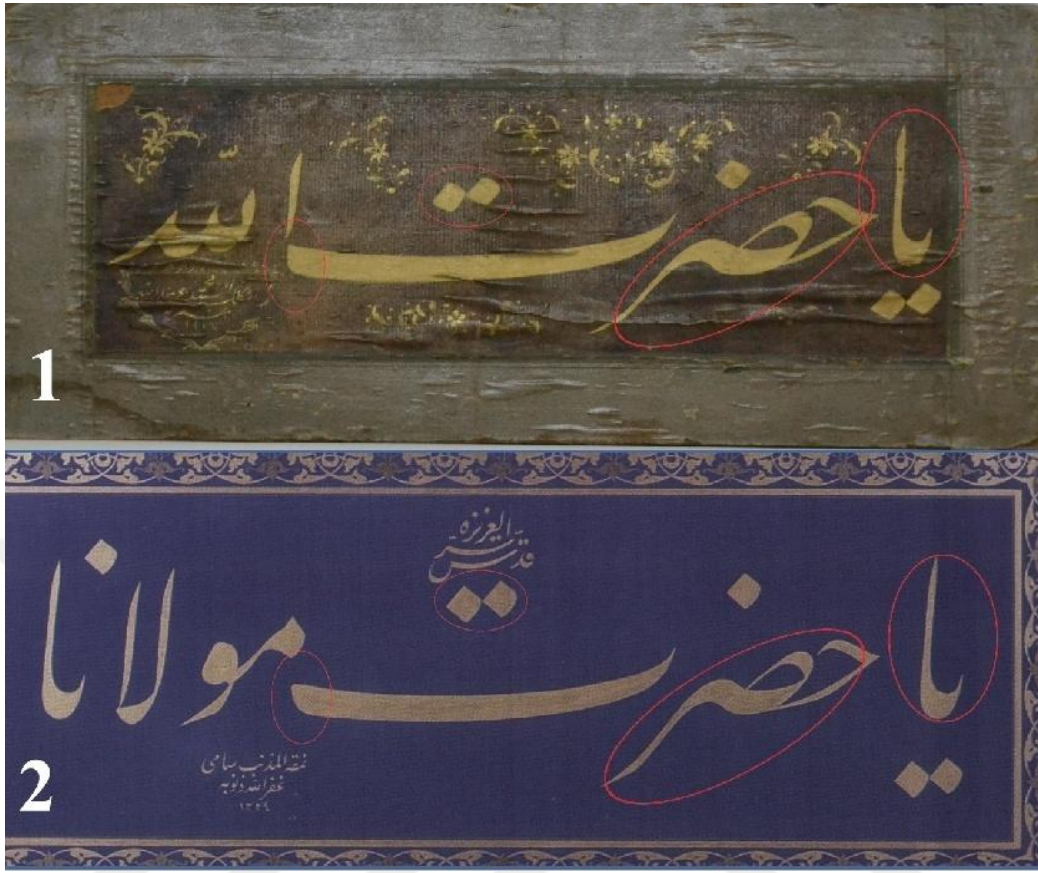 يا حضرت الله
1
قدس سره
العزيزه
يا حضرت مولانا
نمقه المذنب سامي
غفر الله ذنوبه
١٣٢٩
2